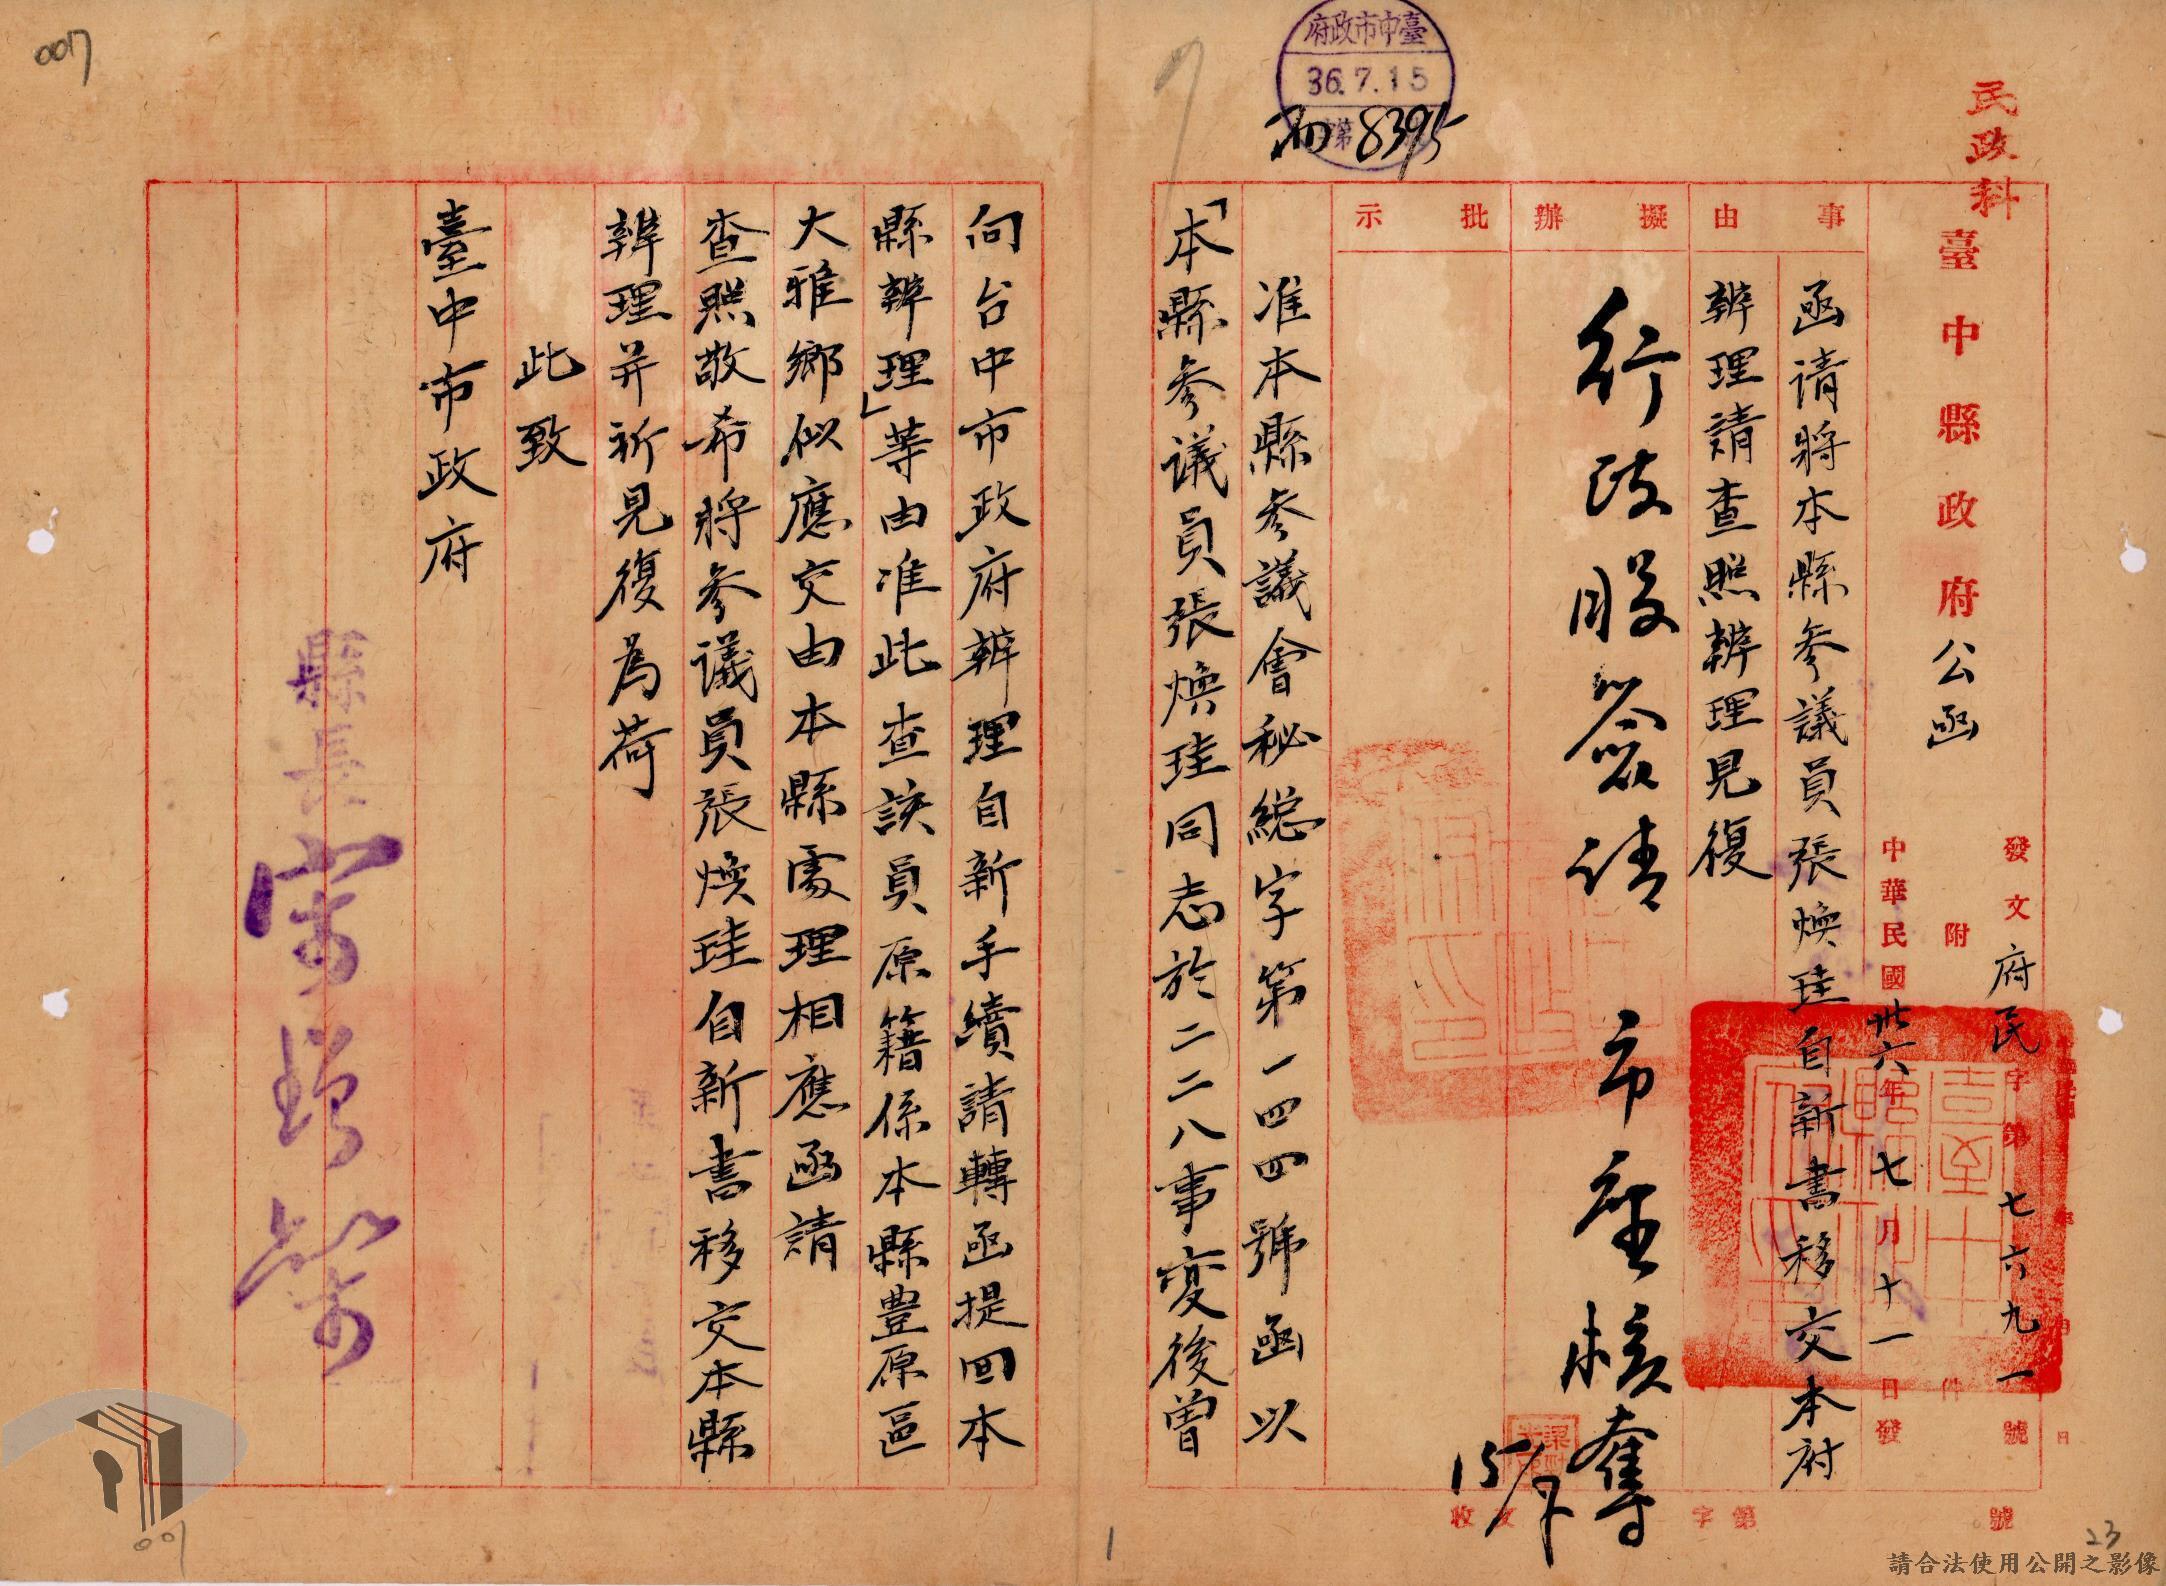 民政科
臺中縣政府公函
發文府民字第七六九一號
附 件
中華民國卅六年七月十一日發
事由
函请將本縣參議員張煥珪自新書移交本府
辦理請查照辦理見復
擬辦
行政股簽请 市座核奪
15/7
批示
臺中市政府
36.7.15
第 8395
准本縣參議會秘總字第一四四號函以
「本縣參議員張煥珪同志於二二八事変後曾
向台中市政府辦理自新手續請轉函提回本
縣辦理」等由准此查該員原籍係本縣豊原區
大雅鄉似應交由本縣處理相應函請
查照敬希將參議員張煥珪自新書移交本縣
辦理并祈見復為荷
此致
臺中市政府
縣長宋增榘
收文 字第 號
007
1
23
001
請合法使用公開之影像